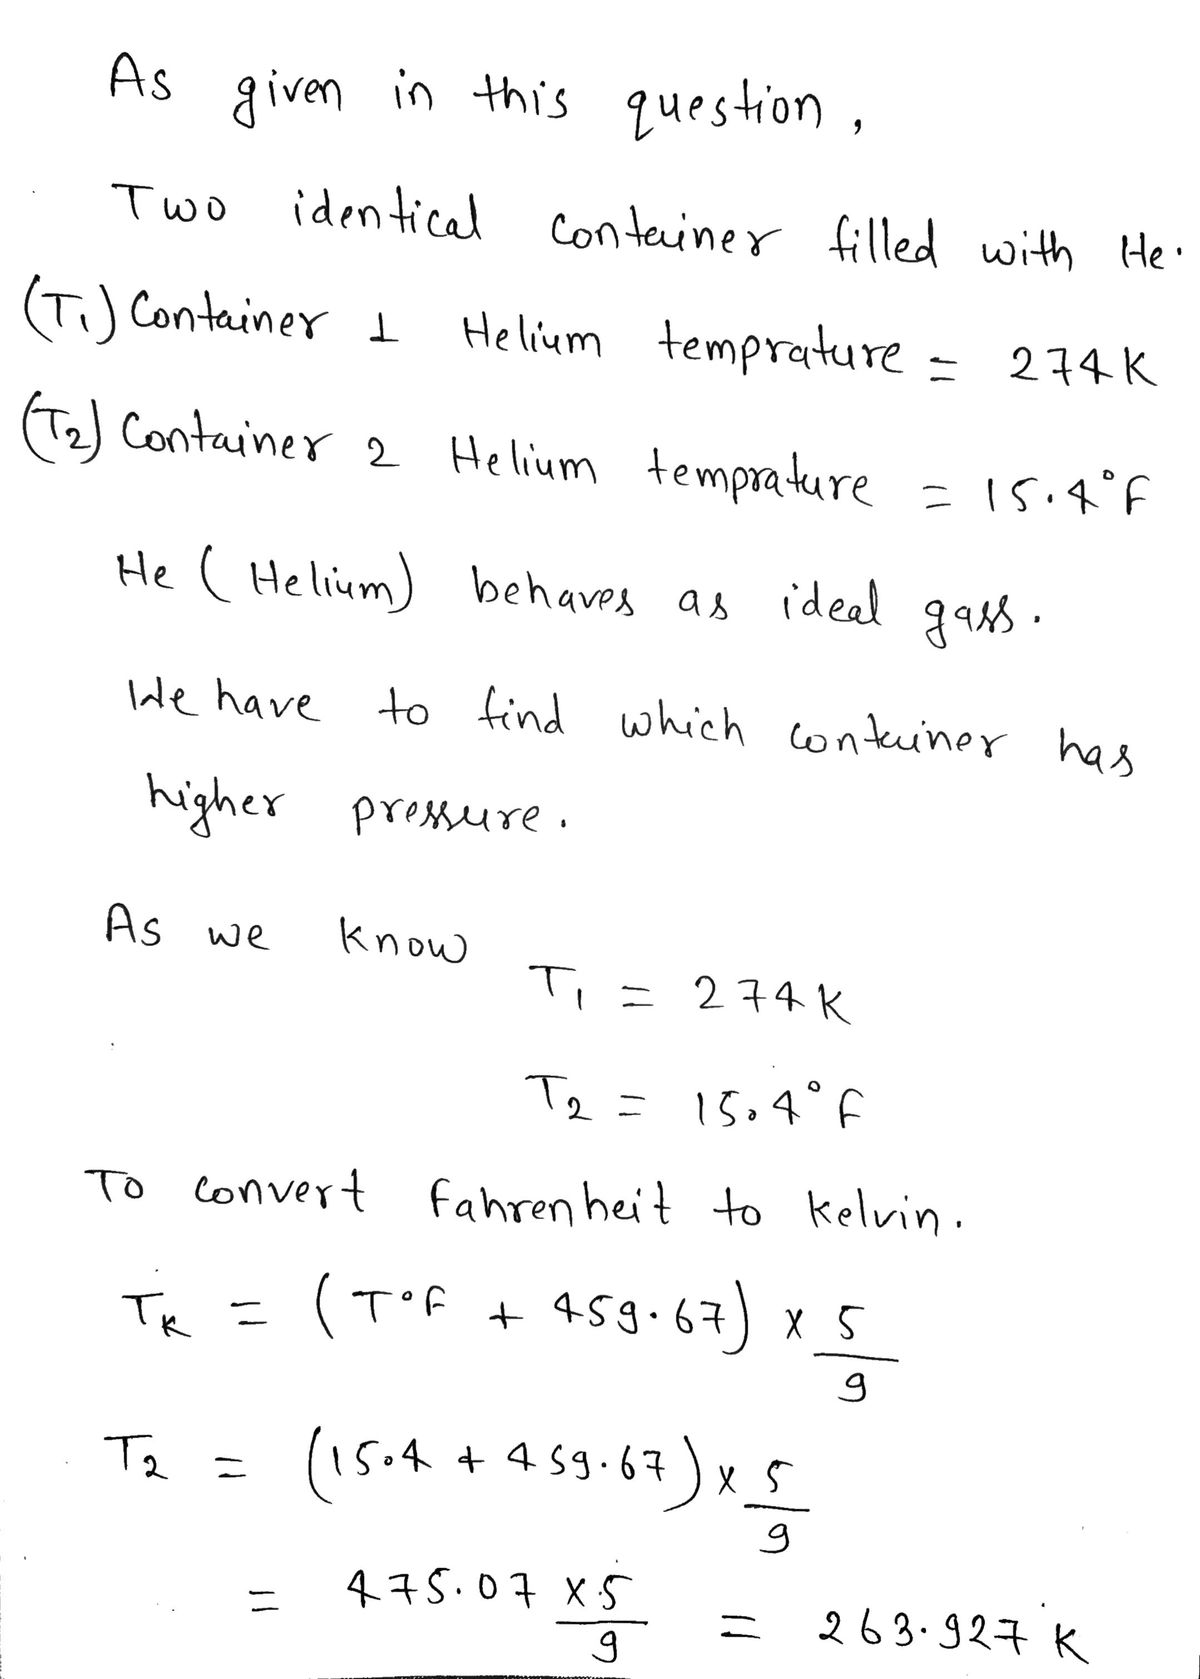 As given in this question,
Two identical container filled with He.
(T₁) Container 1 Helium temprature = 274K
(T₂) Container 2 Helium temprature = 15.4°F
He (Helium) behaves as ideal gass.
We have to find which container has
higher pressure.
As we know
T₁ = 274K
T₂ = 15.4°F
To convert Fahrenheit to kelvin.
Tk = (T°F + 459.67) x 5/9
T₂ = (15.4 + 459.67) x 5/9
= 475.07 x 5/9 = 263.927 K